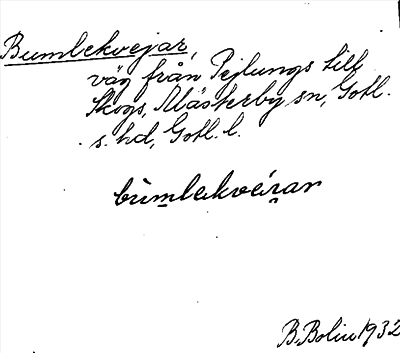 Bumlekvejar,
väg från Pejlungs till
Skogs, Mästerby sn, Gotl.
s. hd, Gotl. l.
bùmlekvéirar
B. Bolin 1932